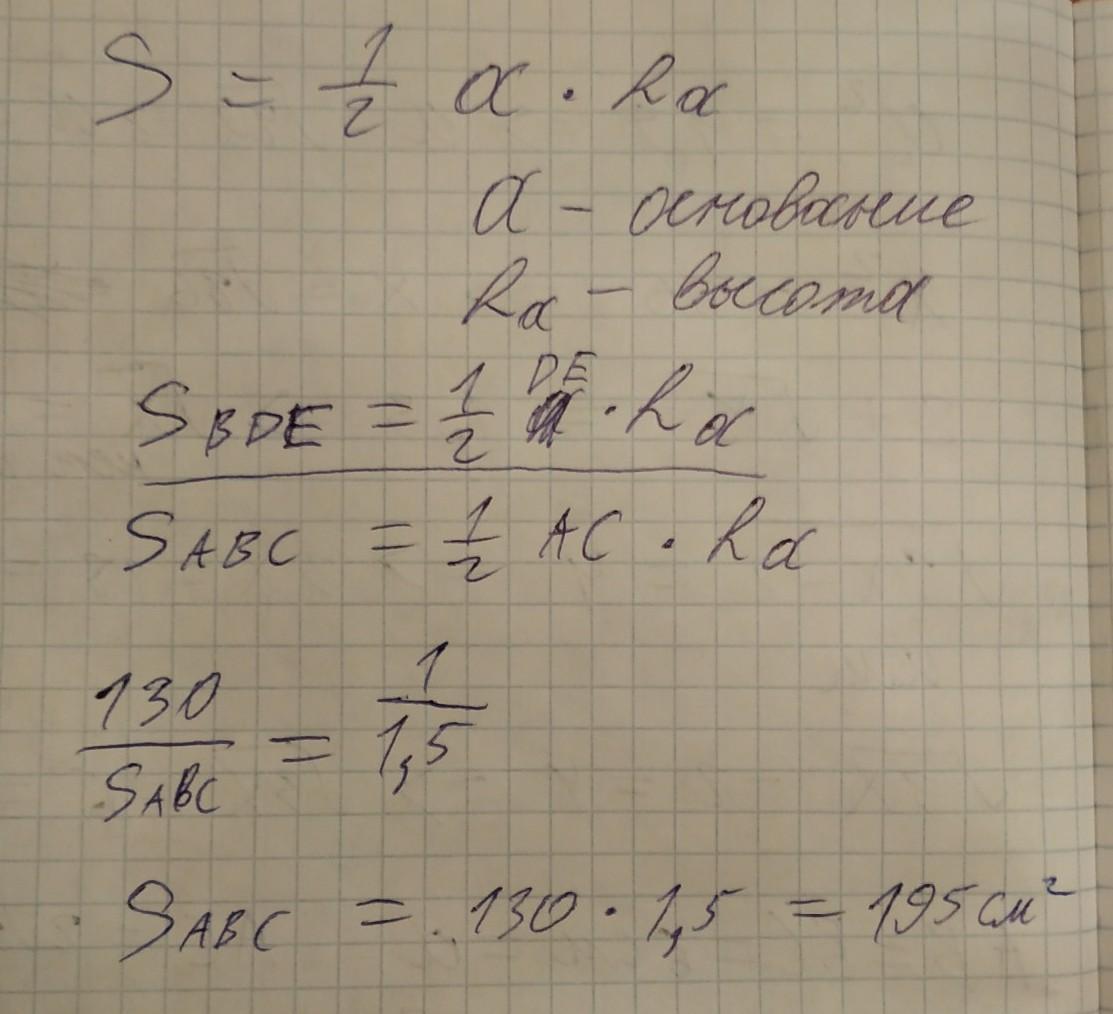 S = 1/2 a · ha
a – основание
ha – высота
SBDE = 1/2 DE · ha
SABC = 1/2 AC · ha
130/SABC = 1/1,5
SABC = 130 · 1,5 = 195 см²